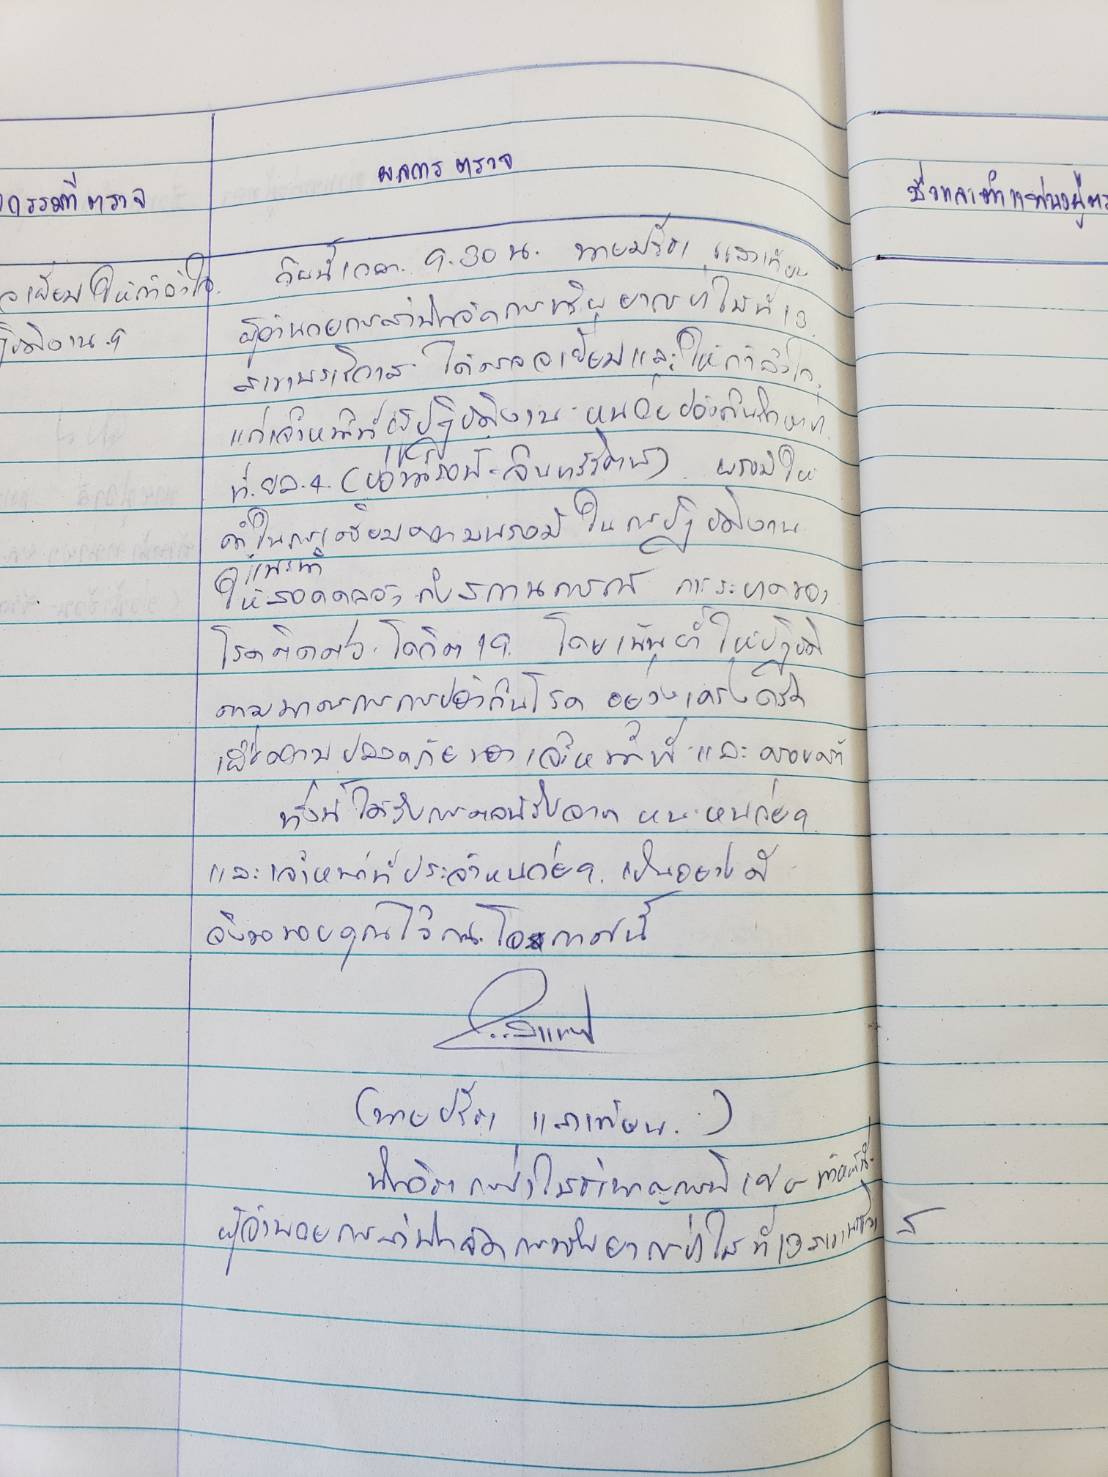 กรรมที่ตรวจ
ผลการตรวจ
ชื่อและตำแหน่งผู้ตร
เยี่ยมให้กำลังใจ
วันนี้เวลา 9.30 น. นายปรีชา แสงเทียน
ผู้อำนวยการสำนักจัดการทรัพยากรป่าไม้ที่ 13
สาขานราธิวาส ได้ตรวจเยี่ยมและให้กำลังใจ
แก่เจ้าหน้าที่ผู้ปฏิบัติงาน หน่วยป้องกันรักษาป่า
ที่ ยล.4 พร้อมให้
ในการเตรียมความพร้อมในการปฏิบัติงาน
แนะนำ
ให้สอดคล้องกับสถานการณ์ การระบาดของ
โรคติดต่อ โควิด 19 โดยเน้นย้ำให้ปฏิบัติ
ตามมาตรการการป้องกันโรค อย่างเคร่งครัด
เพื่อความปลอดภัยของเจ้าหน้าที่ และครอบครัว
ทั้งนี้ได้รับการต้อนรับจาก หน.หน่วยฯ
และเจ้าหน้าที่ประจำหน่วยฯ เป็นอย่างดี
จึงขอขอบคุณไว้ ณ โอกาสนี้
(นายปรีชา แสงเทียน)
นักวิชาการป่าไม้ชำนาญการพิเศษ ทำหน้าที่
ผู้อำนวยการสำนักจัดการทรัพยากรป่าไม้ที่ 13 สาขานราธิวาส